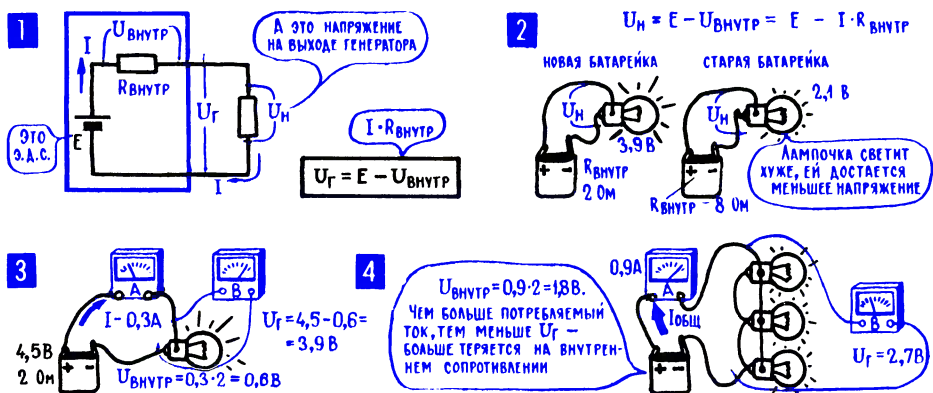 1
I
Uвнутр
Rвнутр
E
Это
э.д.с.
Uг
Uн
I
А это напряжение
на выходе генератора
I·Rвнутр
Uг = E − Uвнутр
2
Uн = E − Uвнутр = E − I·Rвнутр
Новая батарейка
Uн
3,9 В
+ −
Rвнутр
2 Ом
Старая батарейка
2,1 В
Uн
+ −
Rвнутр − 8 Ом
Лампочка светит
хуже, ей достается
меньшее напряжение
3
А
В
I − 0,3А
4,5В
2 Ом
+ −
Uвнутр=0,3·2=0,6В
Uг=4,5−0,6=
=3,9В
4
Uвнутр=0,9·2=1,8В.
Чем больше потребляемый
ток, тем меньше Uг −
больше теряется на внутрен-
нем сопротивлении
0,9А
А
Iобщ
+ −
В
Uг=2,7В